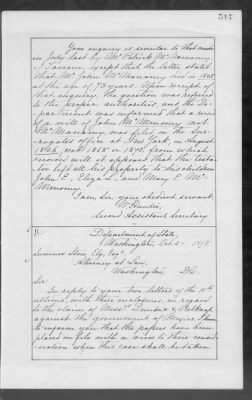 517
Your inquiry is similar to that made
in July last by Mr Patrick McManomy
of Tarrara, except that the letter stated
that Mr John McManomy died in 1868
at the age of 73 years. Upon receipt of
that inquiry, the question was referred
to the proper authorities, and the De-
partment was informed that a will
of John McMenomy, not
McManomy, was filed in the Sur-
rogates office at New York, in August
1866, not 1868 or 1870, from which
record it will appeared that the testa-
tor left all his property to his children
John E., Eliza J., and Mary E. Mc-
Menomy.
I am Sir, your obedient servant,
W Hunter
Second Assistant Secretary
Department of State,
Washington, Oct. 2 - 1878
Sumner Stow Ely, Esqr
Attorney at Law.
Washington D.C.
Sir
In reply to your two letters of the
ultimo, with their enclosures, in regard
to the claim of Messrs
against the government of Mexico, I have
to inform you that the papers have been
placed on file with a view to their consid-
eration when this case shall be taken